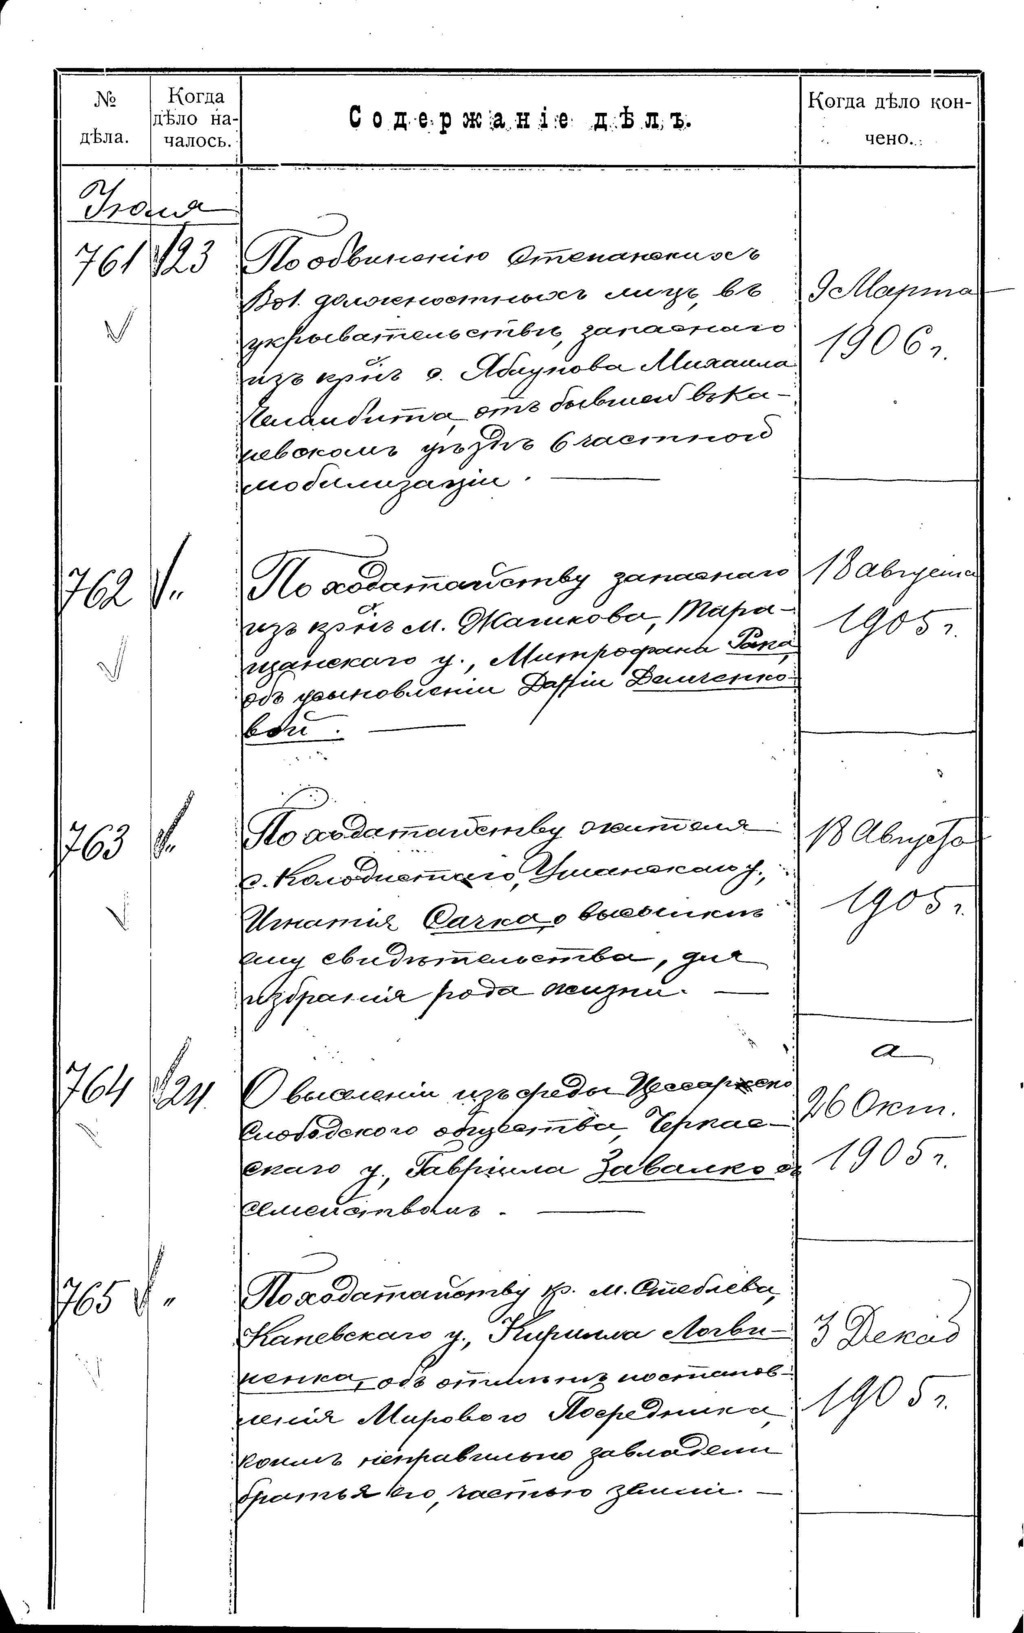 № дѣла.
Когда дѣло началось.
Содержаніе дѣлъ.
Когда дѣло кончено.
Іюля
761 23 По обвиненію Степанскихъ
Вол. должностныхъ лицъ, въ
укрывательствѣ, запаснаго
изъ кр-нъ с. Яблунова Михаила
отъ бывшей въ Ка-
невскомъ уѣздѣ 6 частной
мобилизаціи.
9 Марта
1906 г.
762 " По ходатайству запаснаго
изъ кр-нъ м. Жашкова, Тара-
щанскаго у., Митрофана
объ усыновленіи Даріи Демченко-
вой.
18 августа
1905 г.
763 " По ходатайству жителя
с. Колодистаго, Уманскаго у.,
Игнатія Сачка, о высылкѣ
ему свидѣтельства, для
избранія рода жизни.
18 Августа
1905 г.
764 24 О выселеніи изъ среды Цесарско
Слободского общества, Черкас-
скаго у., Гавріила Завалко съ
семействомъ.
а
26 Окт.
1905 г.
765 " По ходатайству кр. м. Стеблева,
Каневскаго у., Кирилла Логви-
ненка, объ отмѣнѣ постанов-
ленія Мирового Посредника,
коимъ неправильно завладели
братья его, частью земли.
3 Декаб
1905 г.